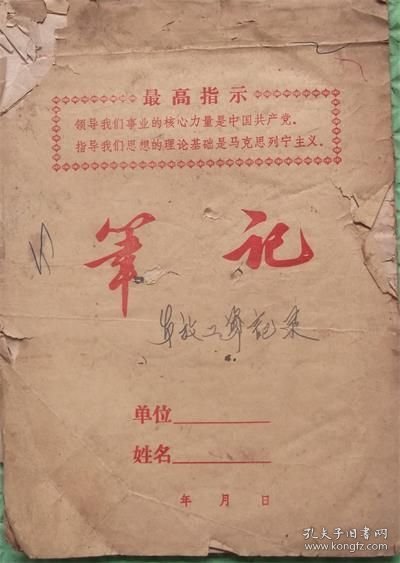 最高指示
领导我们事业的核心力量是中国共产党。
指导我们思想的理论基础是马克思列宁主义。
笔记
工作记录
单位
姓名
年 月 日
孔夫子旧书网
www.kongfz.com